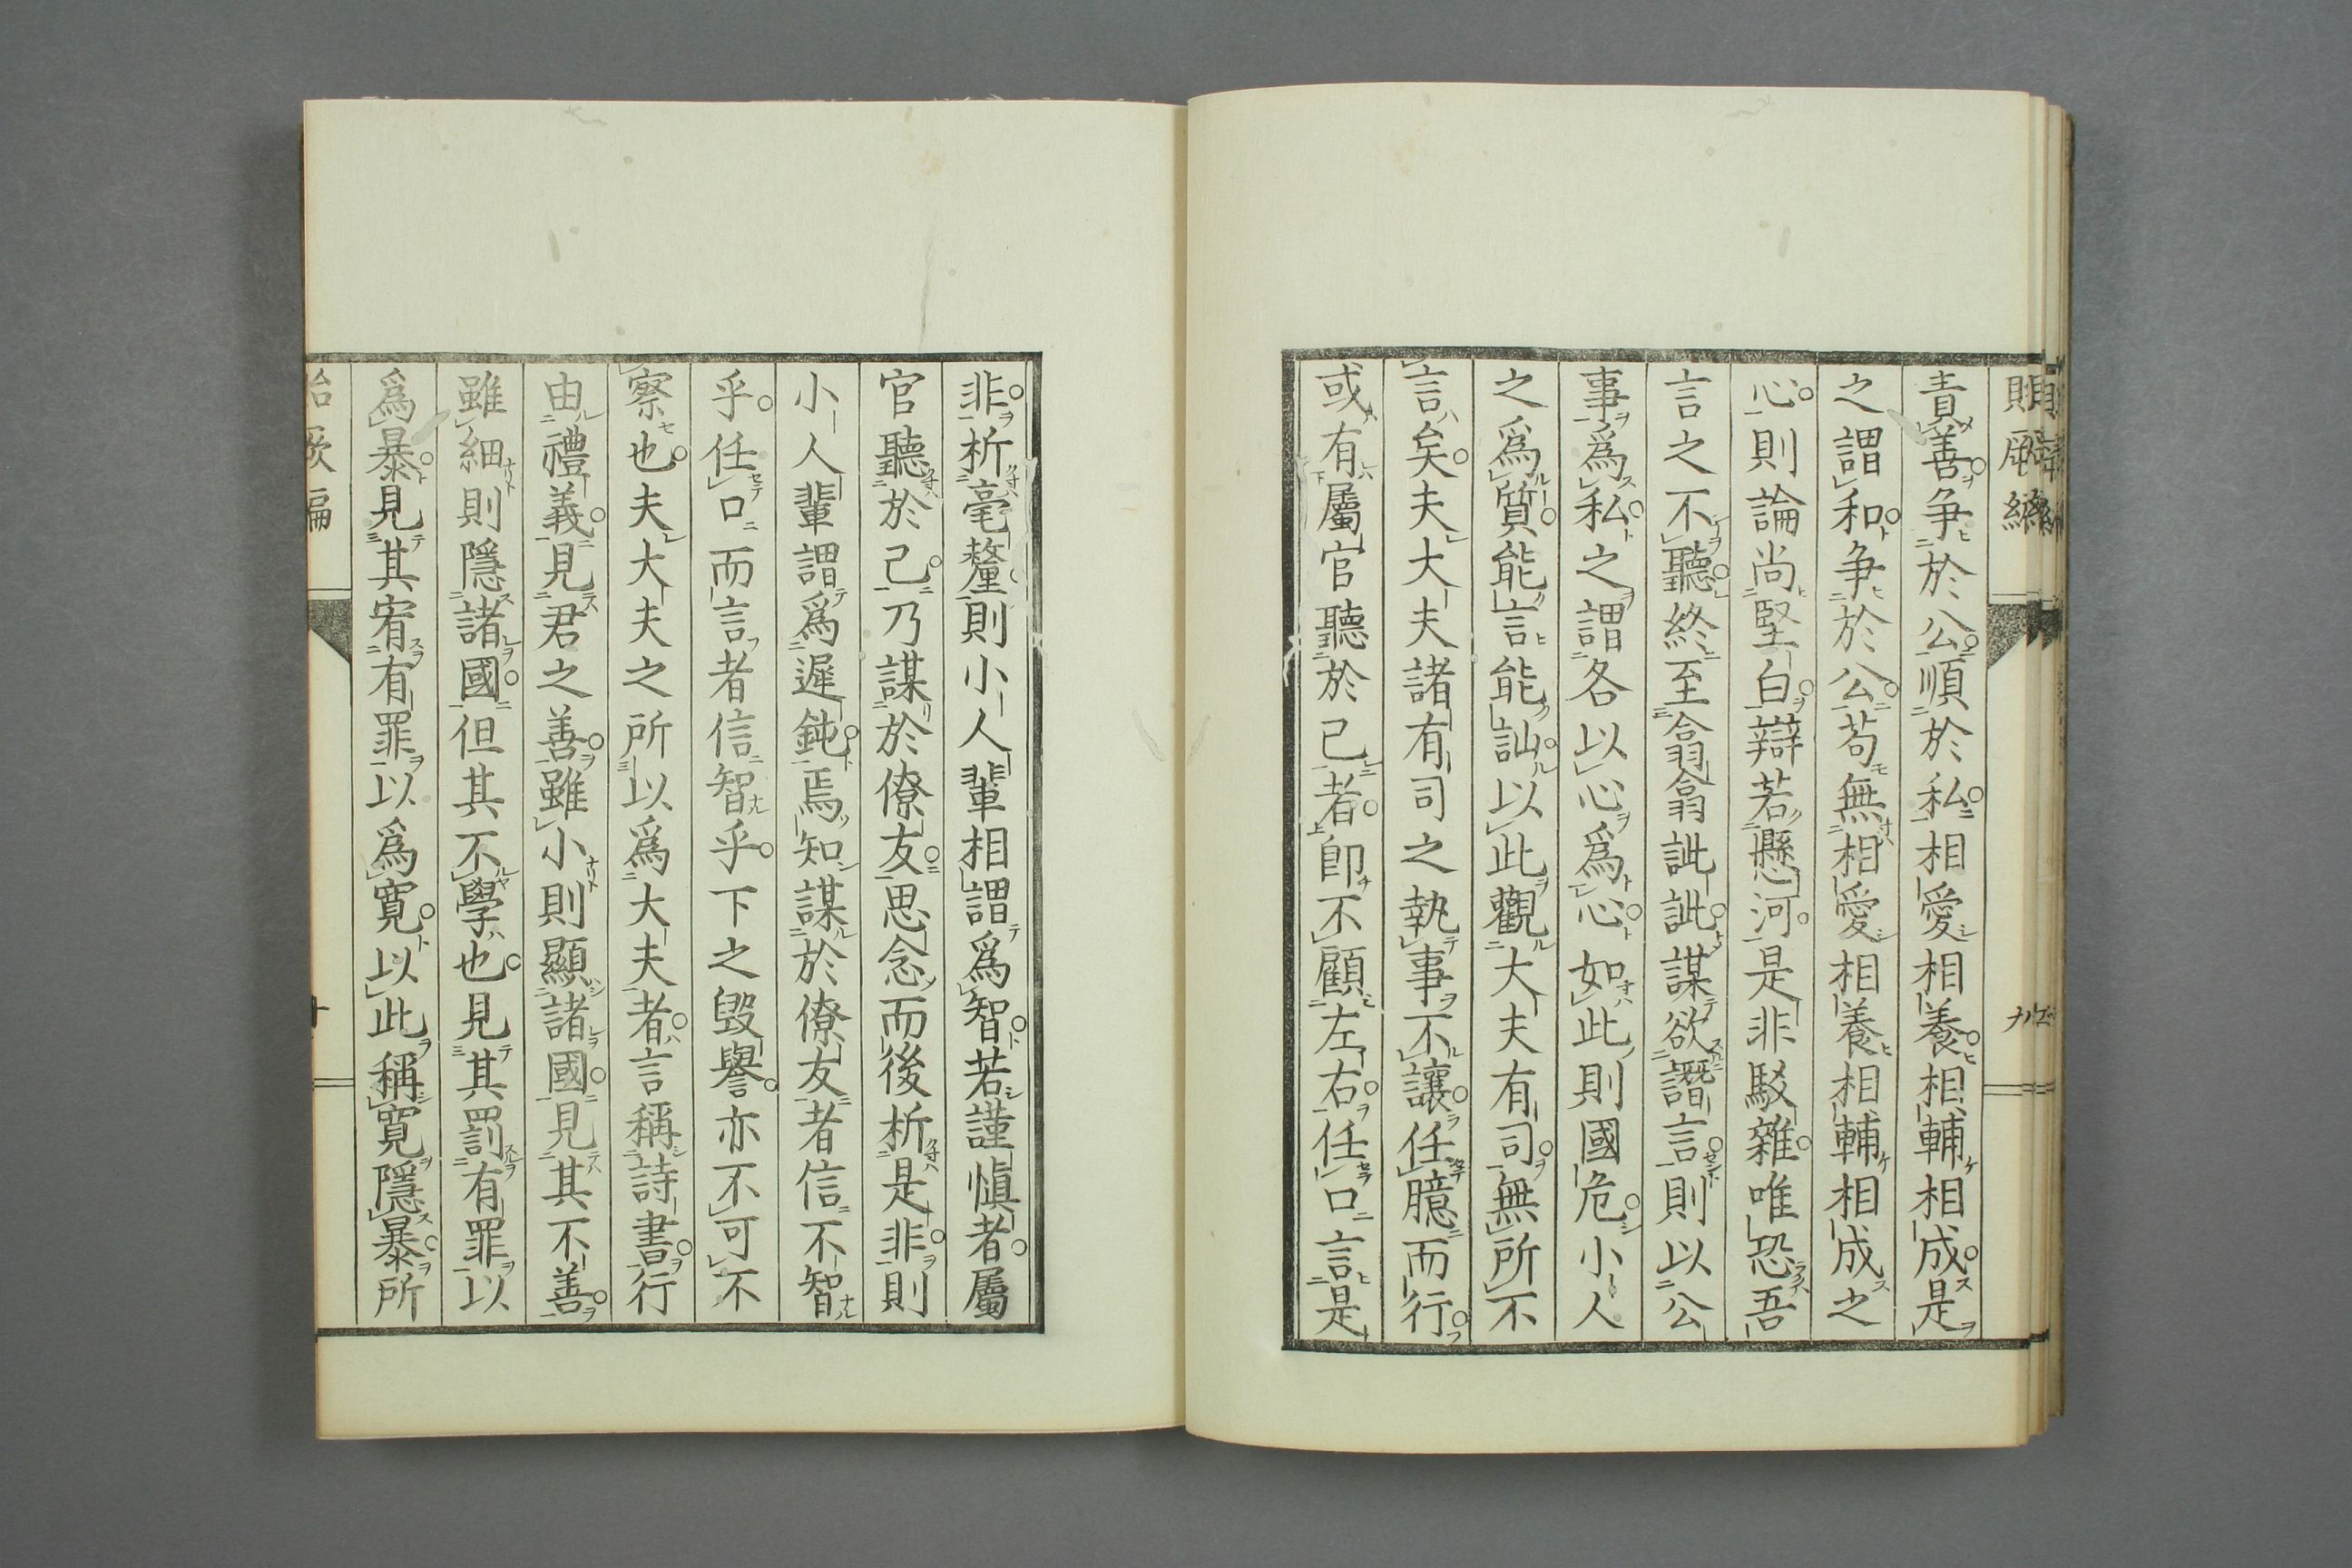 責善爭於公順於私相愛相養相輔相成是
之謂和爭於公苟無相愛相養相輔相成之
心則論尚堅白辯若懸河是非駁雜唯恐吾
言之不聽終至翕翕訿訿謀欲譖言則以公
事爲私之謂各以心爲心如此則國危小人
之爲質能言能訕以此觀大夫有司無所不
言矣夫大夫諸有司之執事不讓任臆而行
或有屬官聽於己者卽不顧左右任口言是
非析毫釐則小人輩相謂爲智若謹愼者屬
官聽於己乃謀於僚友思念而後析是非則
小人輩謂爲遲鈍焉知謀於僚友者信不智
乎任口而言者信智乎下之毀譽亦不可不
察也夫大夫之所以爲大夫者言稱詩書行
由禮義見君之善雖小則顯諸國見其不善
雖細則隱諸國但其不學也見其罰有罪以
爲暴見其宥有罪以爲寬以此稱寬隱暴所